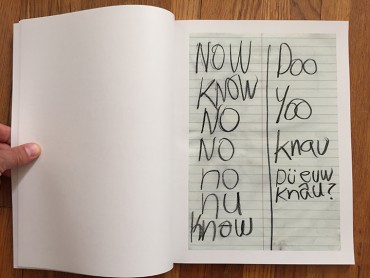 NOW
KNOW
NO
NO
no
nu
know
Doo
Yoo
knau
Dü euw
knau?